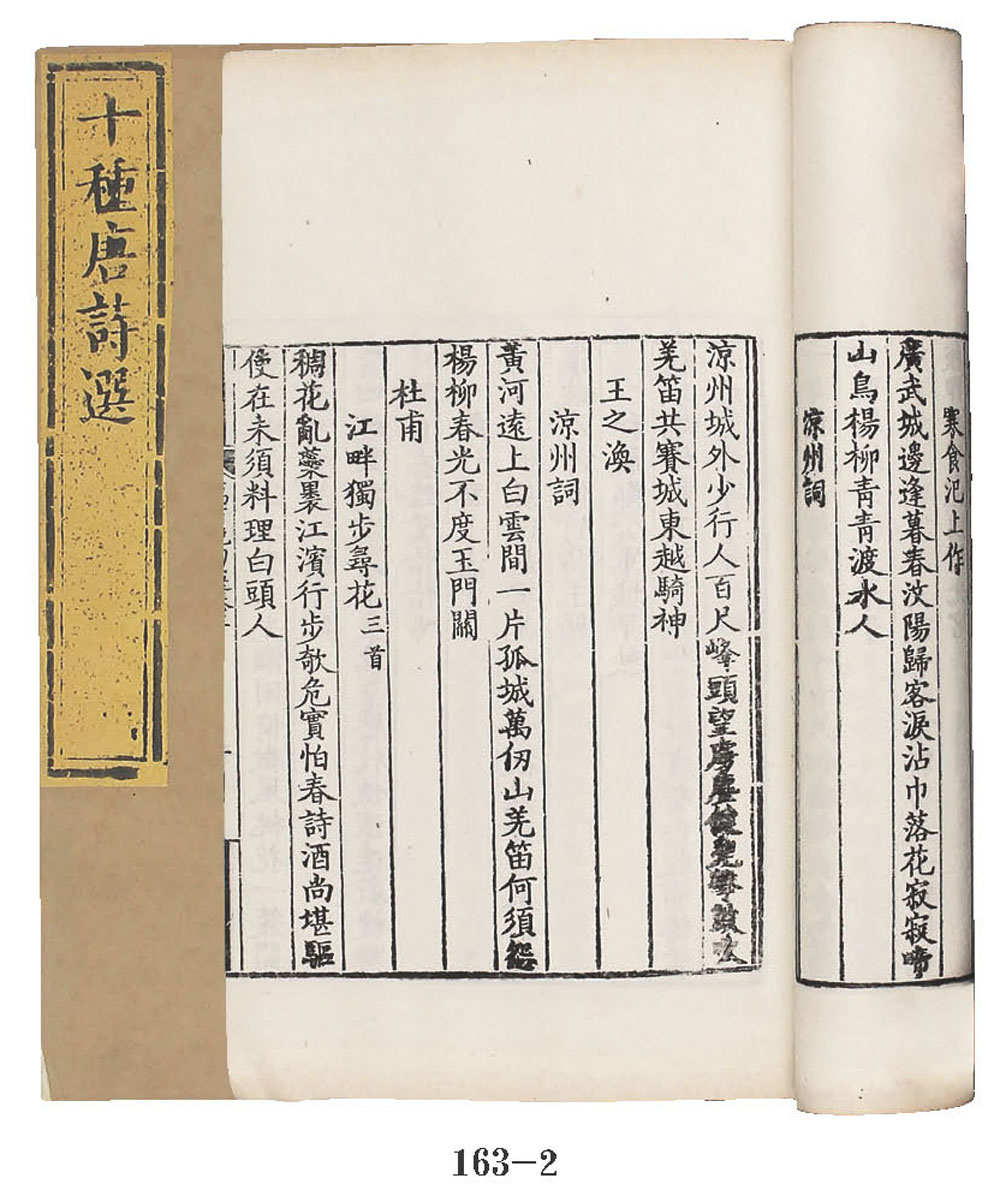 十種唐詩選
寒食汜上作
廣武城邊逢暮春汶陽歸客淚沾巾落花寂寂啼
山鳥楊柳青青渡水人
涼州詞
涼州城外少行人百尺峰頭望
羌笛共賽城東越騎神
王之渙
涼州詞
黃河遠上白雲間一片孤城萬仞山羌笛何須怨
楊柳春光不度玉門關
杜甫
江畔獨步尋花三首
稠花亂蘂裹江濱行步欹危實怕春詩酒尚堪驅
使在未須料理白頭人
163-2